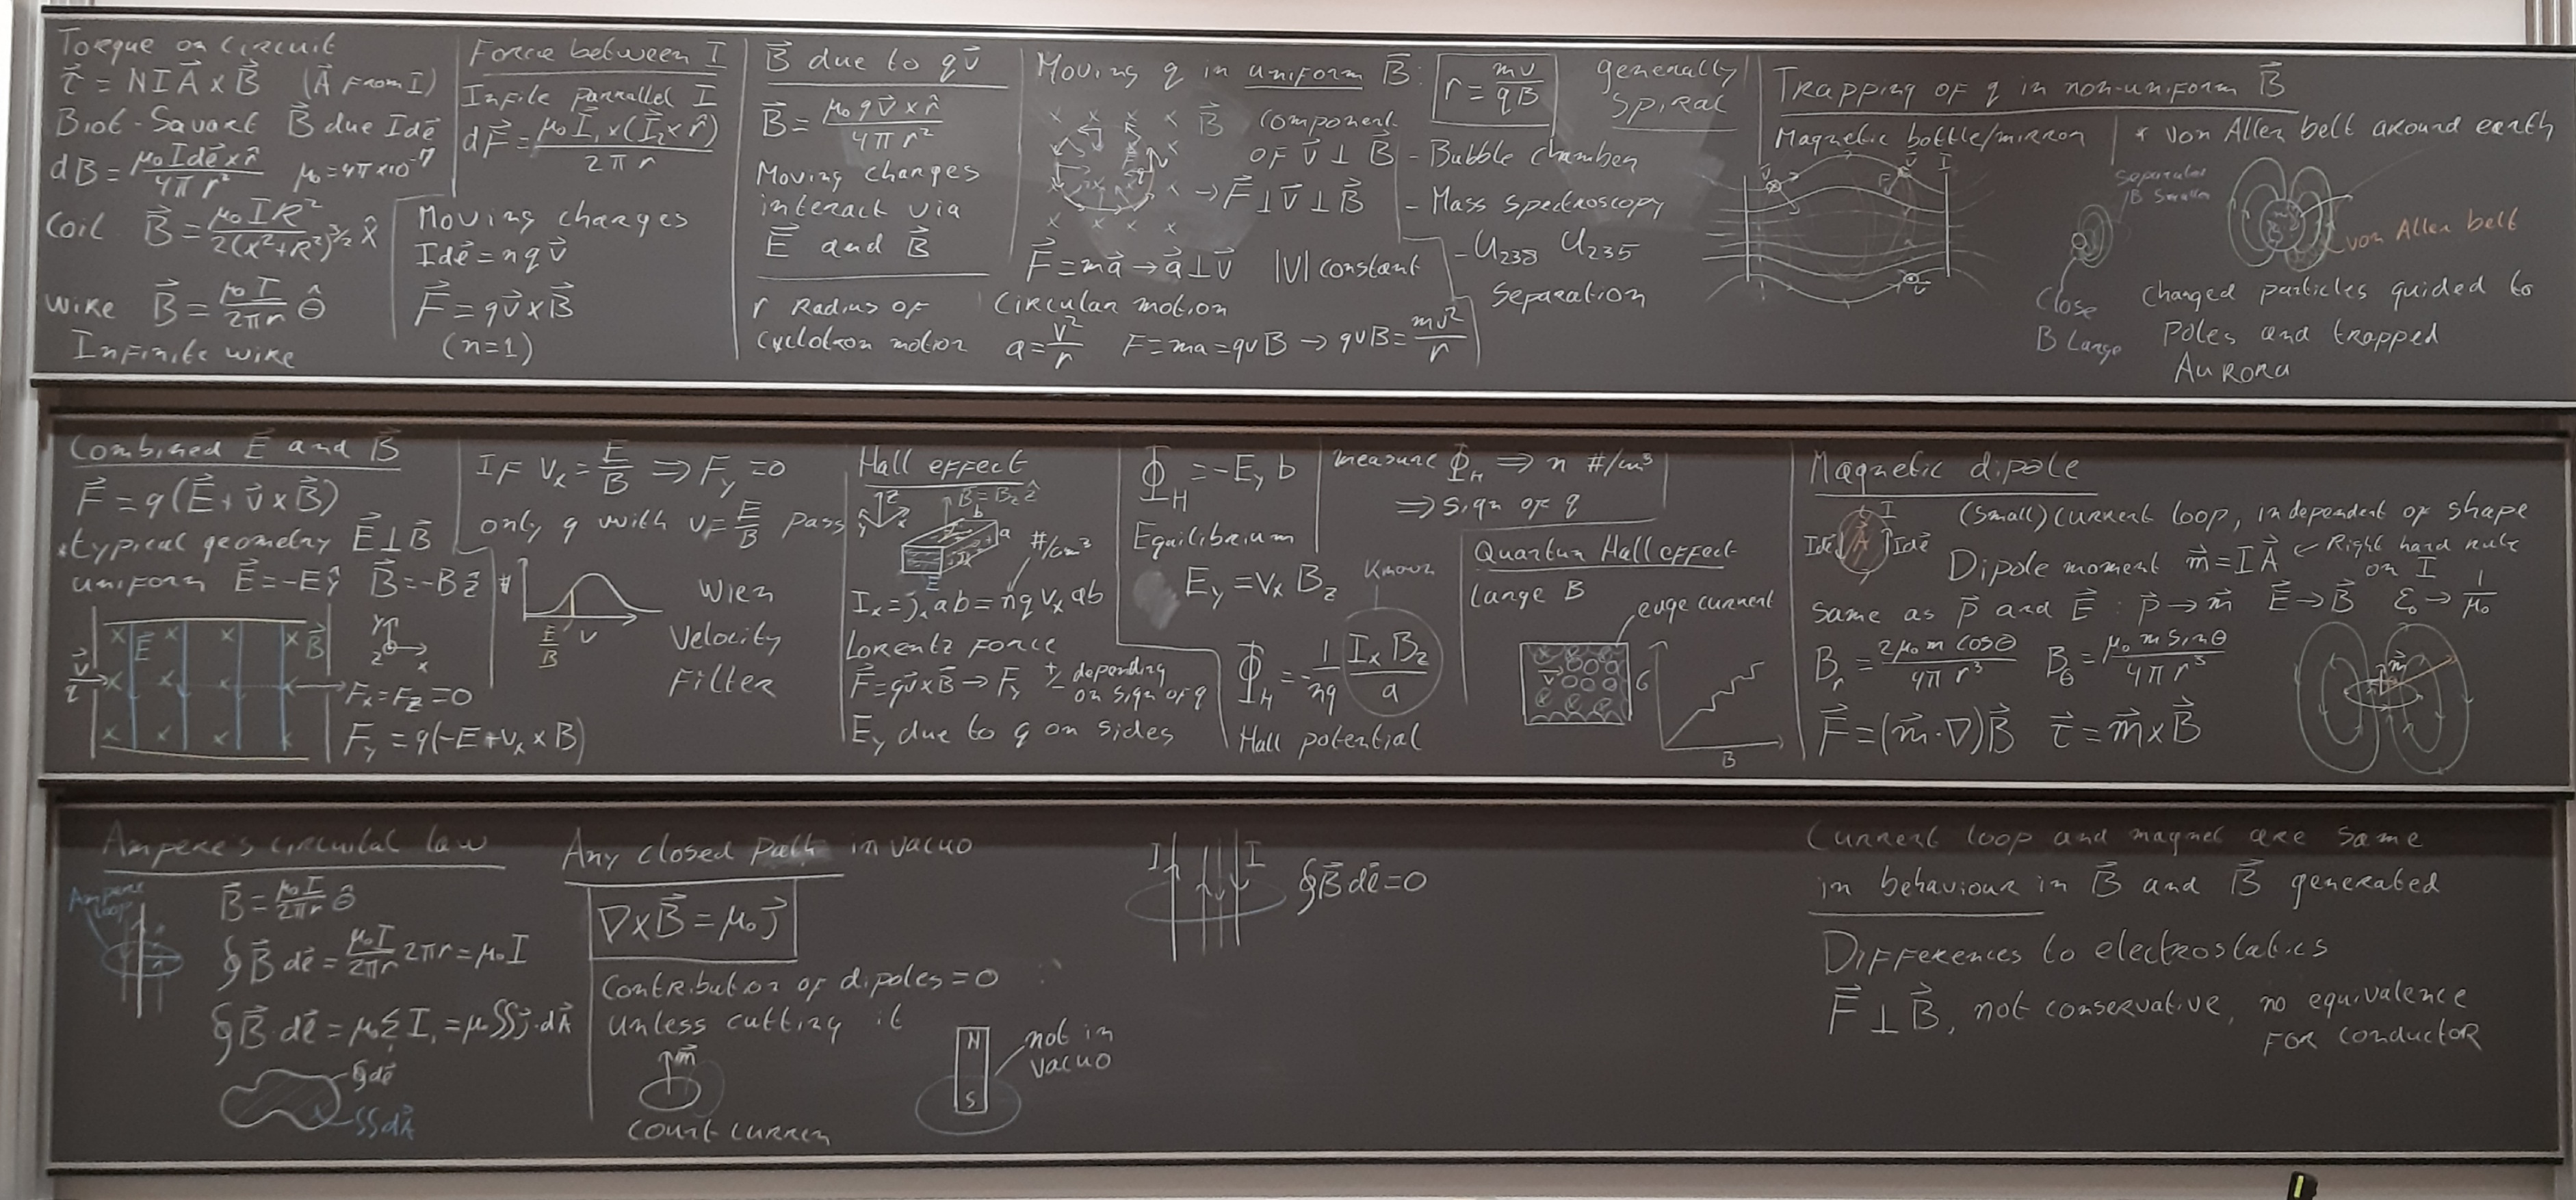 Torque on circuit
τ⃗ = NIA⃗ × B⃗ (A⃗ from I)
Biot-Savart B⃗ due Idℓ⃗
dB = μ₀Idℓ⃗×r̂ / 4πr² μ₀=4π×10⁻⁷
Coil B⃗ = μ₀IR² / 2(x²+R²)^3/2 x̂
wire B⃗ = μ₀I / 2πr θ̂
Infinite wire
Force between I
Infite parrallel I
dF⃗ = μ₀I⃗₁×(I⃗₂×r̂) / 2πr
Moving charges
Idℓ⃗ = nqv⃗
F⃗ = qv⃗×B⃗
(n=1)
B⃗ due to qv⃗
B⃗ = μ₀qv⃗×r̂ / 4πr²
Moving charges
interact via
E⃗ and B⃗
r Radius of
cyclotron motion
Moving q in uniform B⃗: r = mv / qB
generally
spiral
B⃗ component
of v⃗ ⊥ B⃗
→ F⃗ ⊥ v⃗ ⊥ B⃗
F⃗ = ma⃗ → a⃗ ⊥ v⃗ |v| constant
Circular motion
a = v²/r F = ma = qvB → qvB = mv²/r
- Bubble chamber
- Mass spectroscopy
- U₂₃₈ U₂₃₅
separation
Trapping of q in non-uniform B⃗
Magnetic bottle/mirror
v⃗ F v⃗ I
v⃗
* von Allen belt around earth
Separated
B Smaller
von Allen belt
Close
B Large
Charged particles guided to
poles and trapped
Aurora
Combined E⃗ and B⃗
F⃗ = q(E⃗ + v⃗×B⃗)
* typical geometry E⃗ ⊥ B⃗
uniform E⃗ = -Eŷ B⃗ = -Bẑ
E⃗ B⃗
v⃗
y
z x
Fx = Fz = 0
Fy = q(-E + vx × B)
If vx = E/B ⇒ Fy = 0
only q with v = E/B pass
# E/B v
Wien
Velocity
Filter
Hall effect
B⃗ = Bz ẑ
z y x
b a
#/cm³
Ix = jx ab = nq vx ab
Lorentz force
F⃗ = qv⃗×B⃗ → Fy +/- depending
on sign of q
Ey due to q on sides
Φ_H = -Ey b
Equilibrium
Ey = vx Bz
Known
Φ_H = -1/nq Ix Bz / a
Hall potential
measure Φ_H ⇒ n #/cm³
⇒ sign of q
Quantum Hall effect
large B
edge current
v⃗
B
Magnetic dipole
I
Idℓ⃗ A⃗ Idℓ⃗
(small) current loop, independent of shape
Dipole moment m⃗ = IA⃗ ← Right hand rule
on I
same as p⃗ and E⃗ : p⃗ → m⃗ E⃗ → B⃗ ε₀ → 1/μ₀
Br = 2μ₀m cosθ / 4πr³ Bθ = μ₀m sinθ / 4πr³
m⃗
F⃗ = (m⃗·∇)B⃗ τ⃗ = m⃗×B⃗
Ampere's circuital law
Ampere
loop
B⃗ = μ₀I / 2πr θ̂
∮B⃗ dℓ⃗ = μ₀I/2πr 2πr = μ₀I
∮B⃗·dℓ⃗ = μ₀ΣIᵢ = μ₀∫∫j⃗·dA⃗
∮dℓ⃗
∫∫dA⃗
Any closed path in vacuo
∇×B⃗ = μ₀j⃗
Contribution of dipoles = 0
unless cutting it
m⃗
N
S
not in
vacuo
count curren
I I ∮B⃗ dℓ⃗ = 0
Current loop and magnet are same
in behaviour in B⃗ and B⃗ generated
Differences to electrostatics
F⃗ ⊥ B⃗, not conservative, no equivalence
for conductor